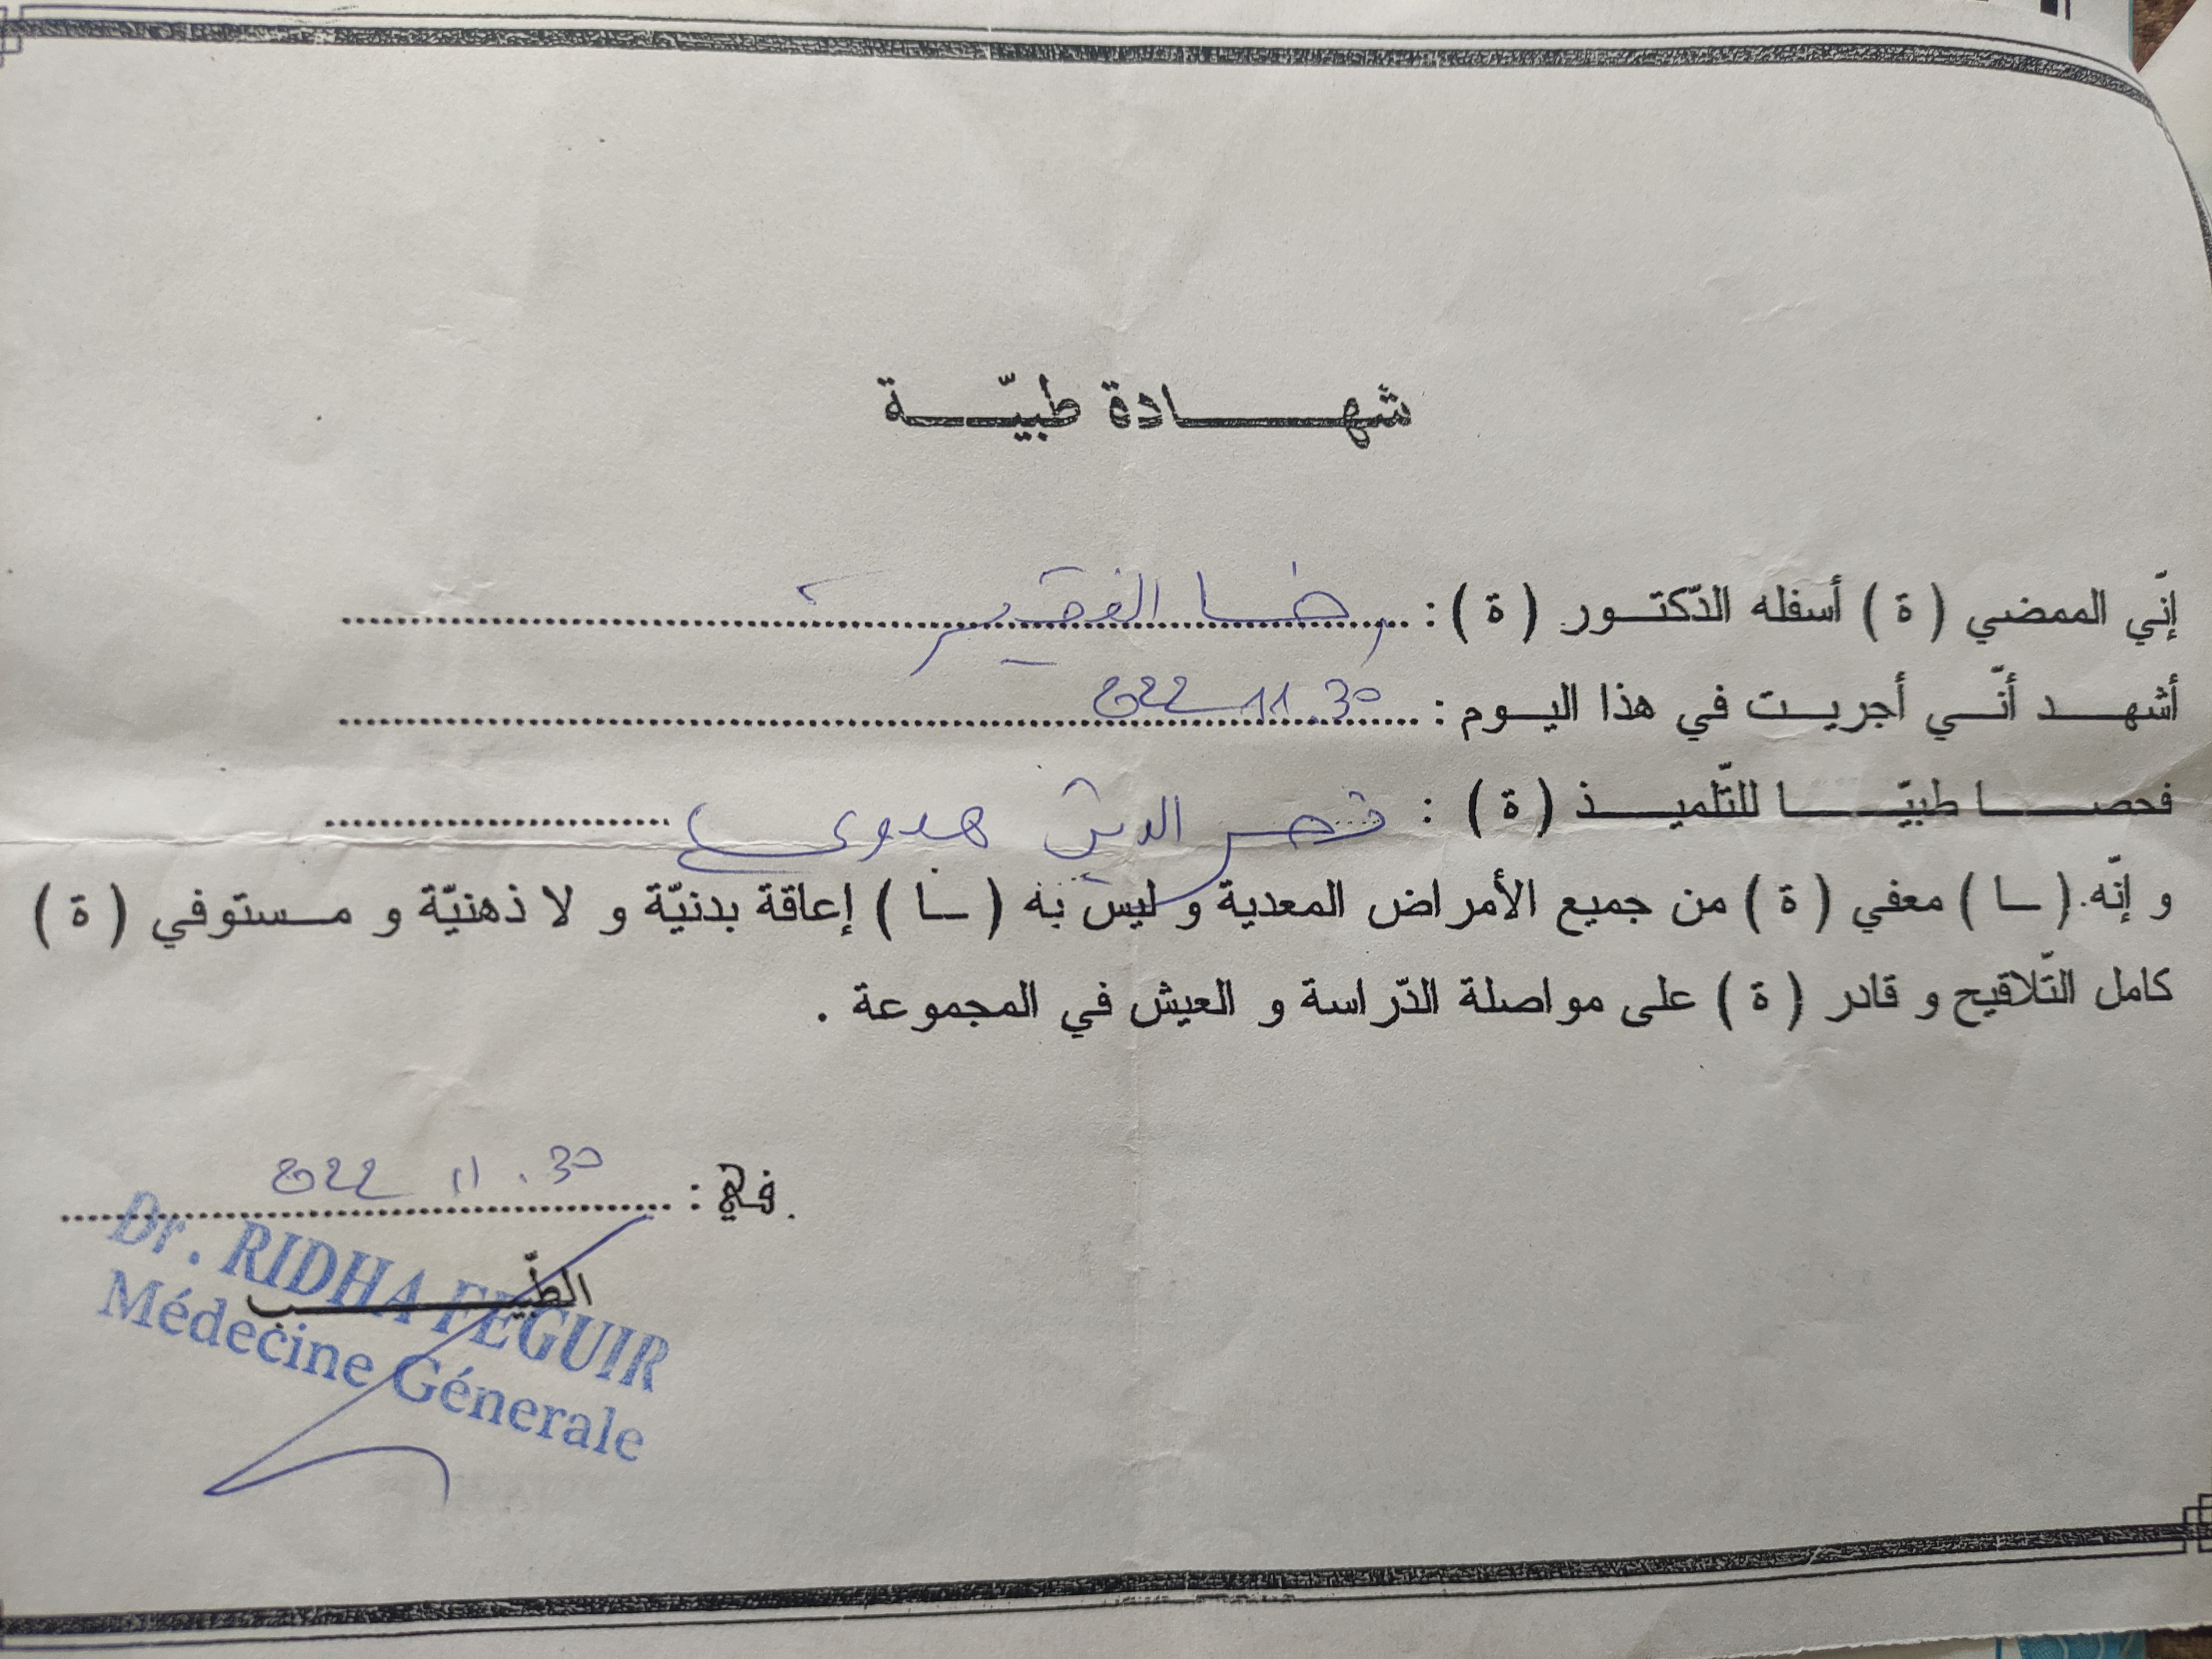 شهادة طبيّة
إنّي الممضي ( ة ) أسفله الدّكتور ( ة ) : رضا الفقير
أشهد أنّي أجريت في هذا اليوم : 30. 11 2022
فحصا طبيّا للتّلميذ ( ة ) : الدين
و إنّه. ( ـا ) معفي ( ة ) من جميع الأمراض المعدية و ليس به ( ـا ) إعاقة بدنيّة و لا ذهنيّة و مستوفي ( ة )
كامل التّلاقيح و قادر ( ة ) على مواصلة الدّراسة و العيش في المجموعة .
في : 30 . 11 2022
الطّبيب
Dr. RIDHA FEGUIR
Médecine Génerale